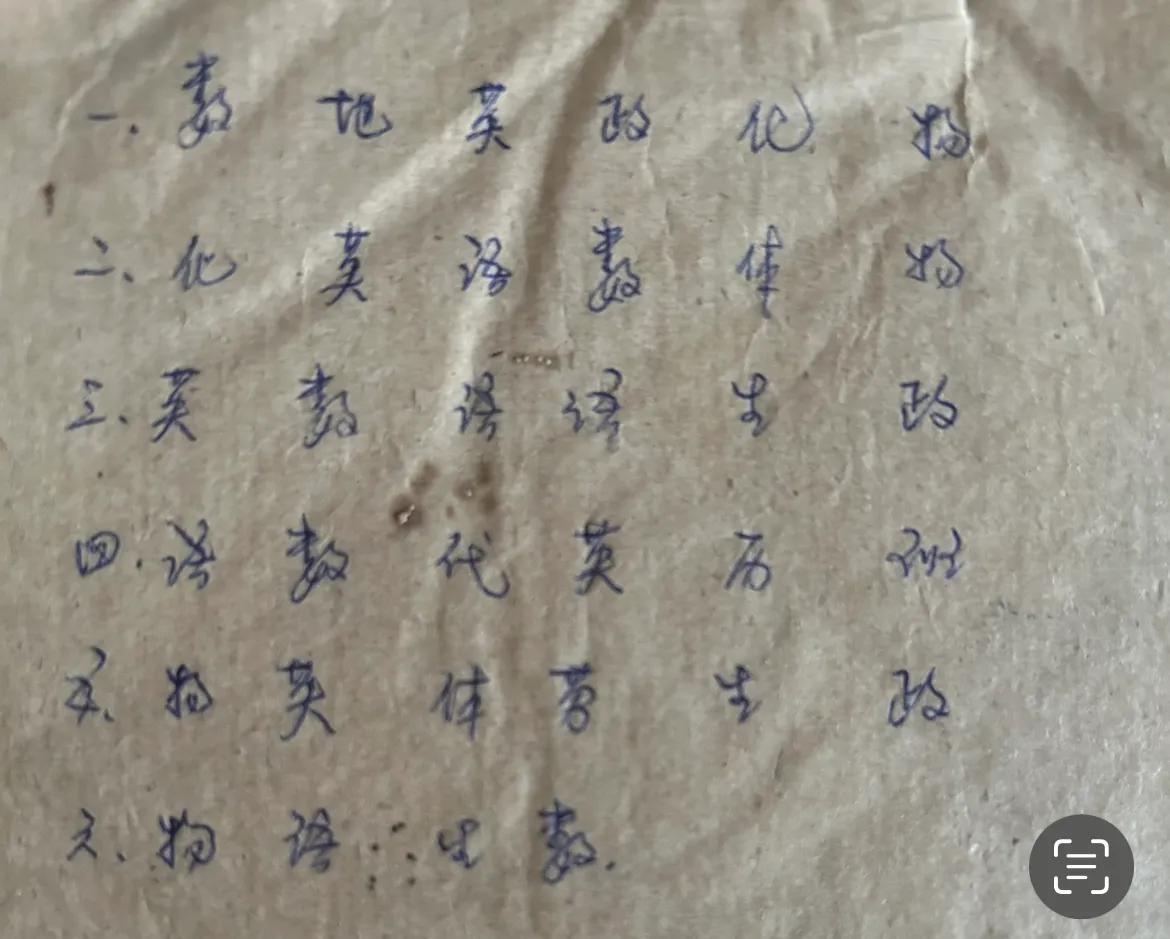 一、数 地 英 政 化 物
二、化 英 语 数 体 物
三、英 数 语 语 生 政
四、语 数 代 英 历 班
五、物 英 体 劳 生 政
六、物 语 生 数.